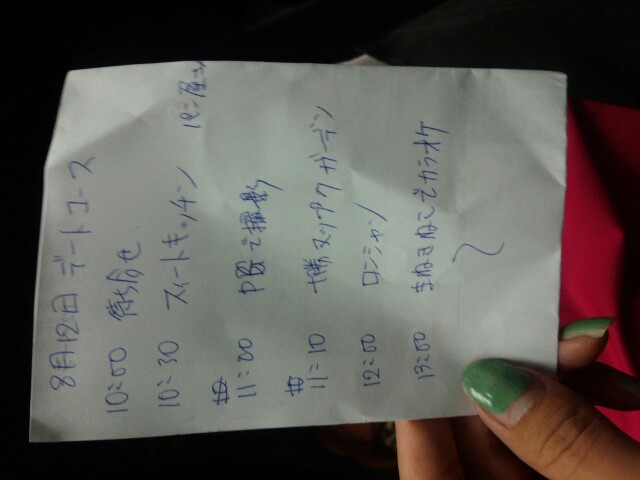 8月12日 デートコース
10:00 待ち合せ
10:30 スィートキッチン パン屋さん
11:00 駅で撮影
11:10 十勝ヌップクガーデン
12:00 ロンシャン
13:00 まねきねこでカラオケ
〜